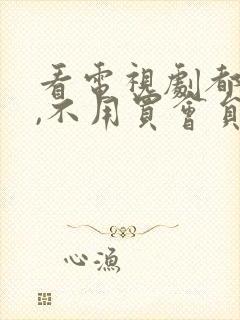 看電視劇都
,不用買會員
心漁